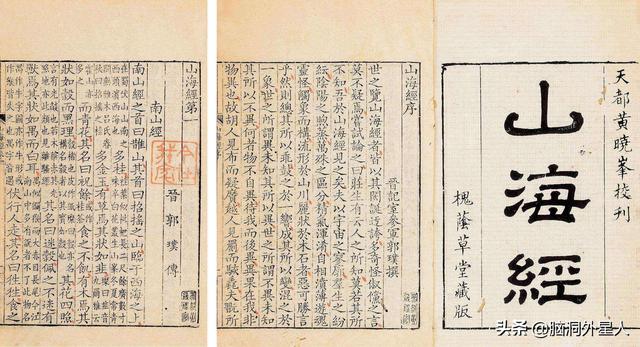 天都黄曉峯校刊
山海經
槐蔭草堂藏版
山海經序
晉記室參軍郭璞撰
世之覽山海經者皆以其閎誕迂誇多奇怪俶儻之言
莫不疑焉嘗試論之曰莊生有云人之所知莫若其所
不知吾於山海經見之矣夫以宇宙之寥廓羣生之紛
紜陰陽之煦蒸萬殊之區分精氣渾淆自相濆薄遊魂
靈怪觸象而構流形於山川麗狀於木石者惡可勝言
乎然則總其所以乖鼓之於一響成其所以變混之於
一象世之所謂異未知其所以異世之所謂不異未知
其所以不異何者物不自異待我而後異異果在我非
物異也故胡人見布而疑黂越人見罽而駭毳夫翫所
山海經第一
晉 郭璞 傳
南山經
南山經之首曰䧿山其首曰招搖之山臨于西海之上
多桂
多金玉有草焉其狀如韭
而青花其名曰祝餘食之不飢有木焉其
狀如榖而黑理其花四照
其名曰迷榖佩之不迷有
獸焉其狀如禺而白耳
伏行人走其名曰狌狌食之
头条 @脑洞外星人